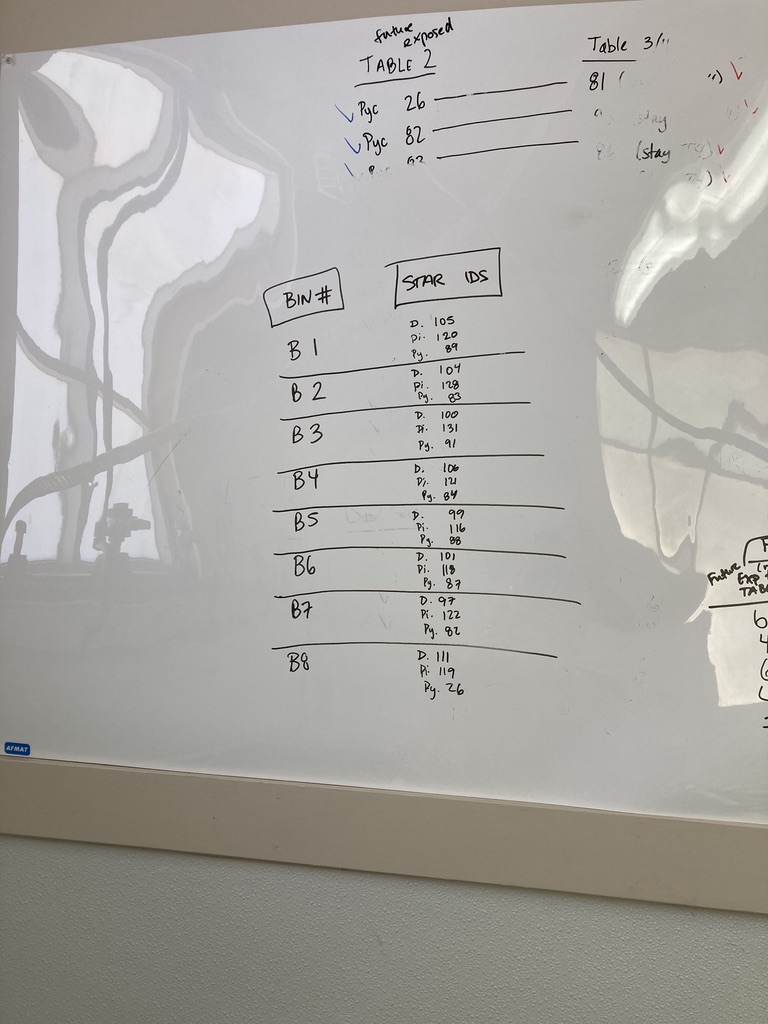 future
exposed
TABLE 2
Table 3/11
Pyc 26
81 (
Pyc 82
stay
(stay
BIN #
STAR IDS
B 1
D. 105
Pi. 120
Py. 89
B 2
D. 104
Pi. 128
Py. 83
B 3
D. 100
Pi. 131
Py. 91
B4
D. 106
Pi. 121
Py. 84
B5
D. 99
Pi. 116
Py. 88
B6
D. 101
Pi. 118
Py. 87
B7
D. 97
Pi. 122
Py. 82
B8
D. 111
Pi. 119
Py. 26
Future
EXP
TAB
AFMAT